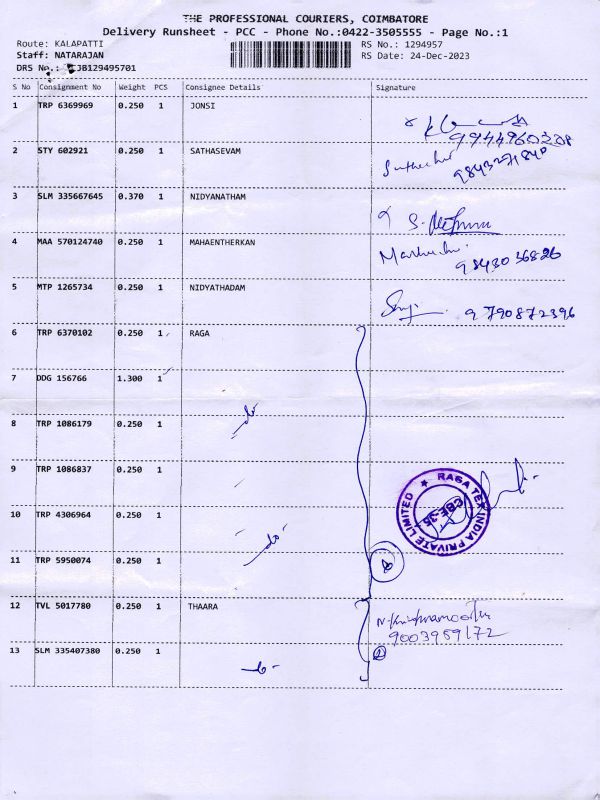 THE PROFESSIONAL COURIERS, COIMBATORE
Delivery Runsheet - PCC - Phone No.:0422-3505555 - Page No.:1
Route: KALAPATTI
RS No.: 1294957
Staff: NATARAJAN
RS Date: 24-Dec-2023
DRS No.: JB129495701
S No Consignment No Weight PCS Consignee Details Signature
1 TRP 6369969 0.250 1 JONSI
9944960208
2 STY 602921 0.250 1 SATHASEVAM
9843271840
3 SLM 335667645 0.370 1 NIDYANATHAM
4 MAA 570124740 0.250 1 MAHAENTHERKAN
9843036826
5 MTP 1265734 0.250 1 NIDYATHADAM
9790872396
6 TRP 6370102 0.250 1 RAGA
7 DDG 156766 1.300 1
8 TRP 1086179 0.250 1 do
9 TRP 1086837 0.250 1
RAGA TEX INDIA PRIVATE LIMITED
CBE-35
10 TRP 4306964 0.250 1 do
11 TRP 5950074 0.250 1
12 TVL 5017780 0.250 1 THAARA
9003959172
13 SLM 335407380 0.250 1